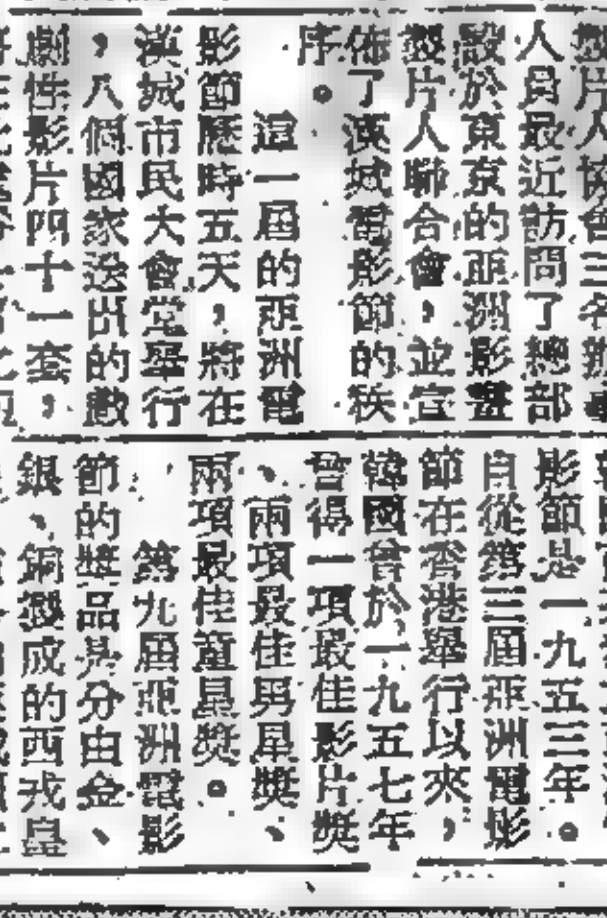 製片人協會三名辦事
人員最近訪問了總部
設於東京的亞洲影畫
製片人聯合會，並宣
佈了漢城電影節的秩
序。
這一屆的亞洲電
影節歷時五天，將在
漢城市民大會堂舉行
，八個國家送出的戲
劇性影片四十一套，
影節是一九五三年。
自從第三屆亞洲電影
節在香港舉行以來，
韓國曾於一九五七年
曾得一項最佳影片獎
、兩項最佳男星獎、
兩項最佳童星獎。
第九屆亞洲電影
節的獎品是分由金、
銀、銅製成的西戎皇